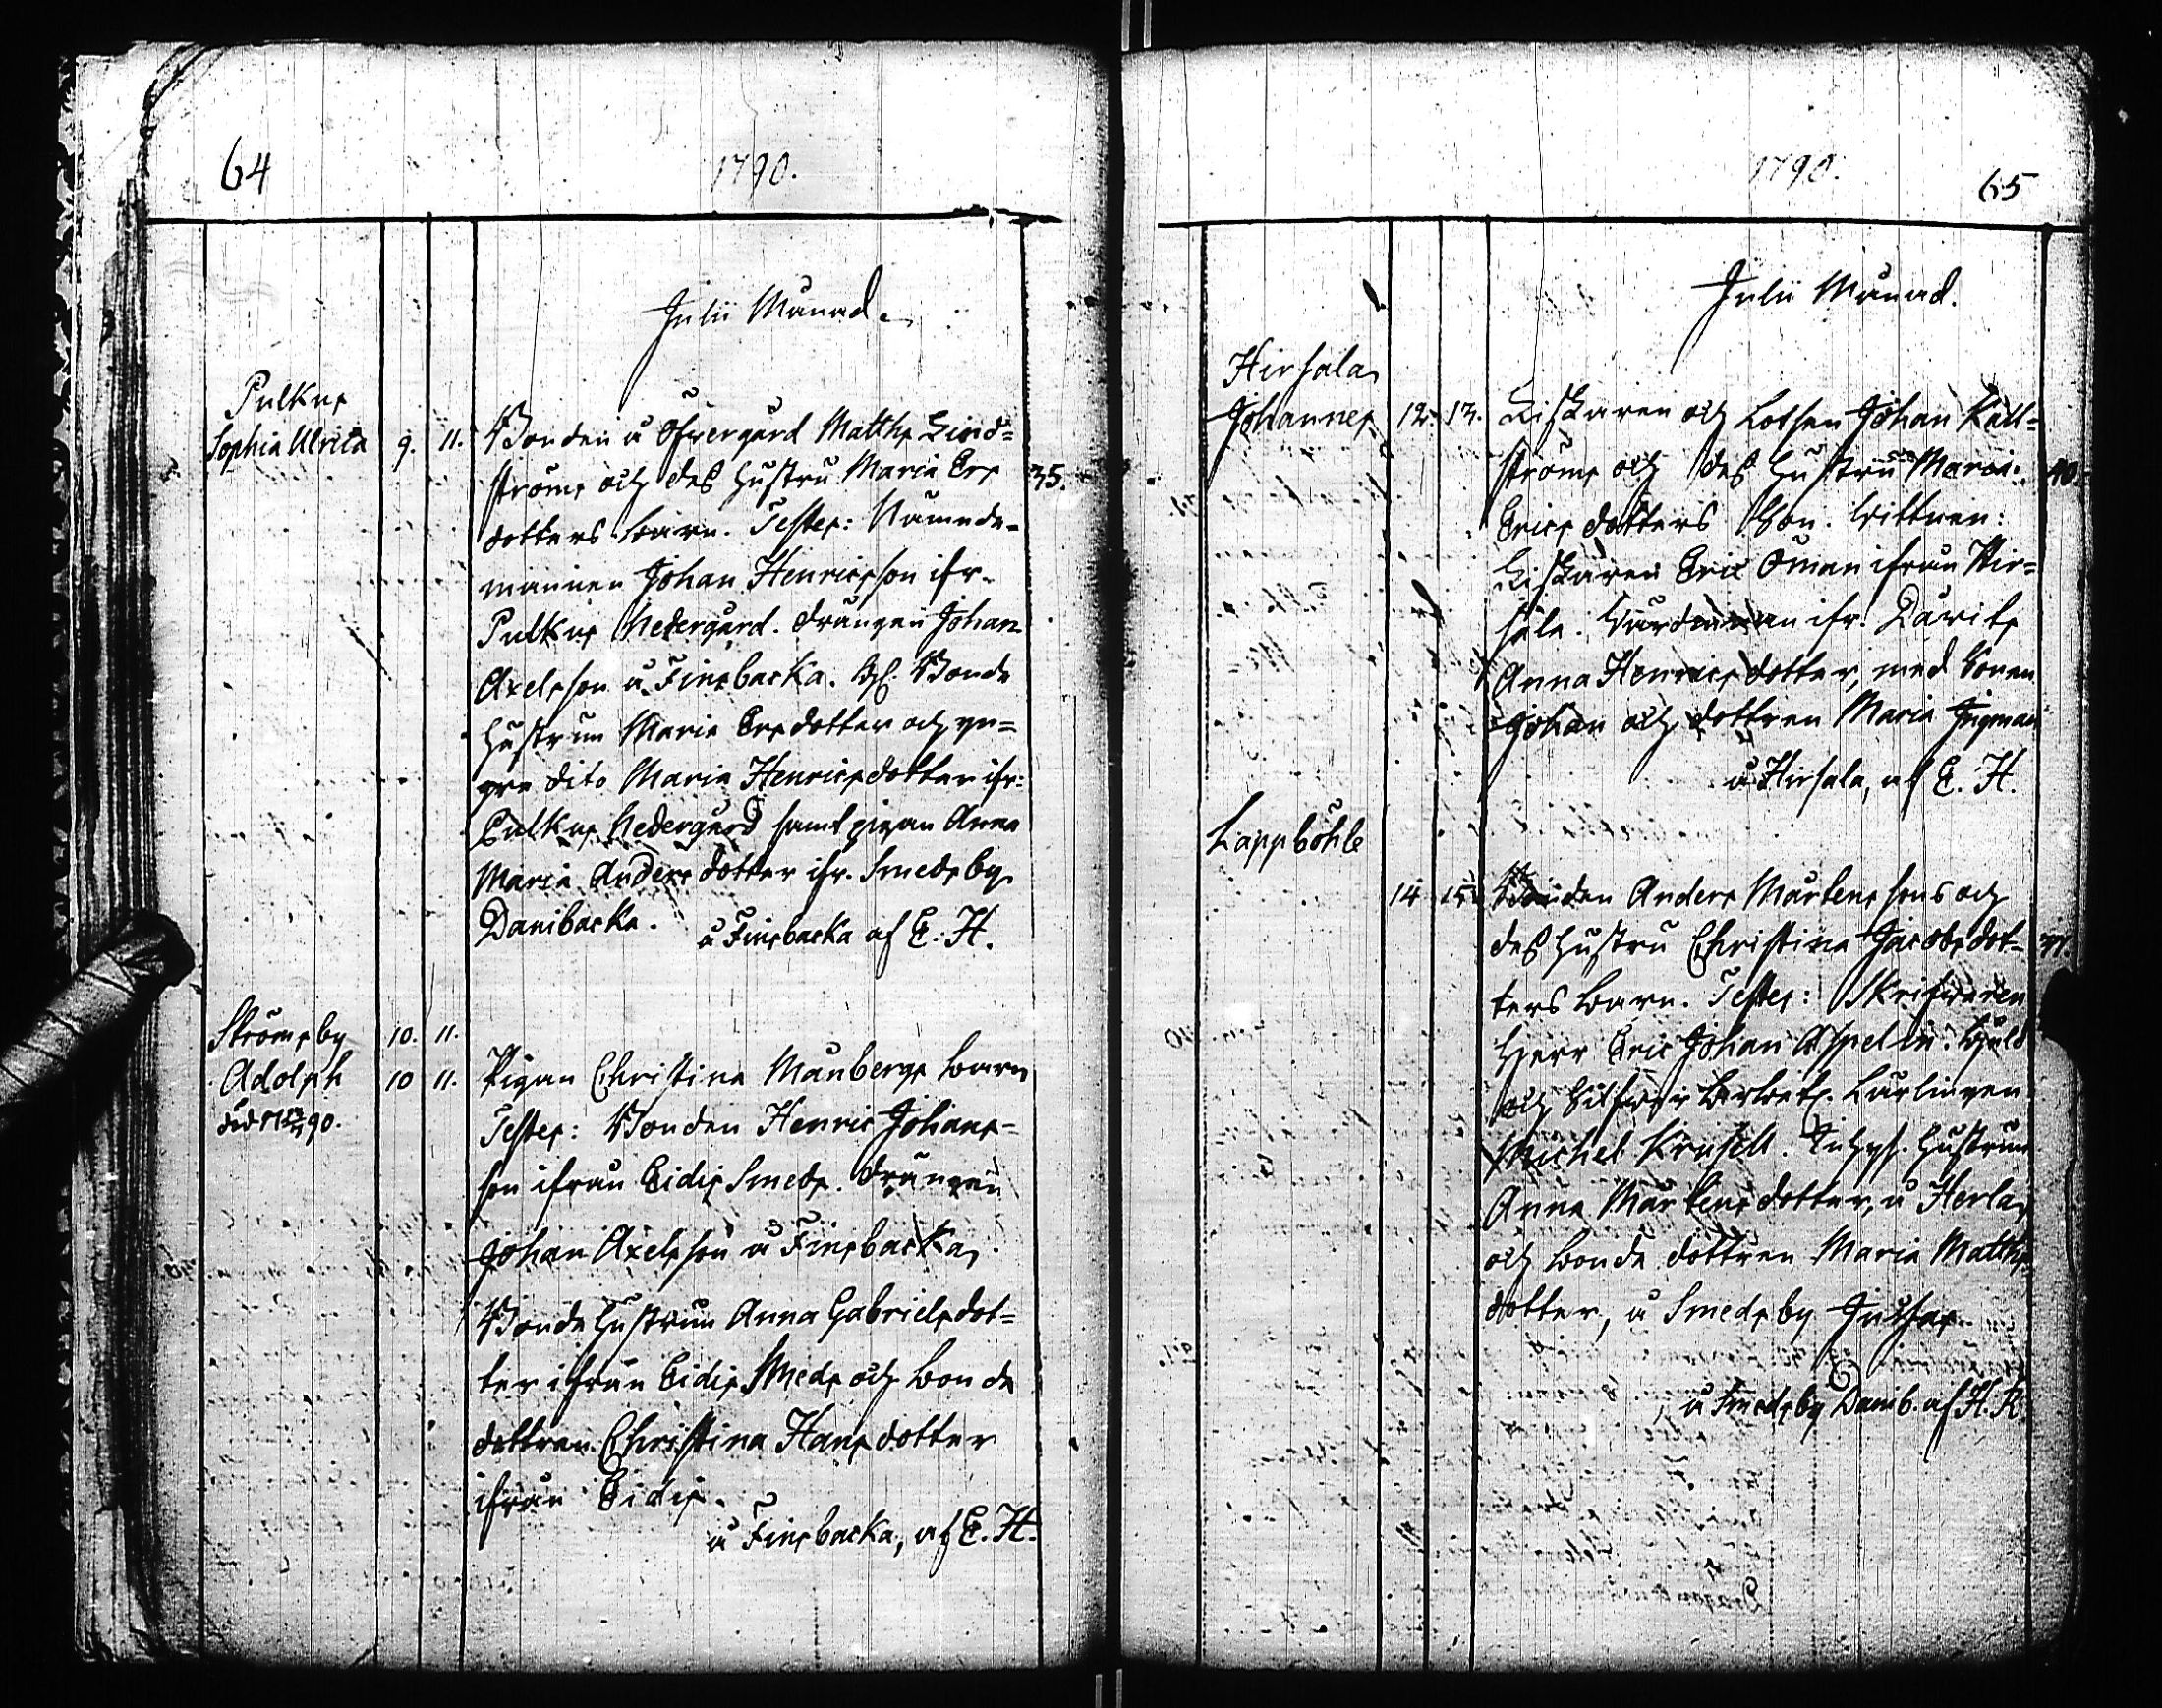 64
1790.
Julii Månad.
Pulkus
Sophia Ulrica 9. 11. Bonden å Öfvergård Matths Lind=
ströms och des hustru Maria Ers 35.
dotters barn. Testes: Nämnde-
mannen Johan Henricsson ifr.
Pulkus Nedergård. drängen Johan
Axelsson å Finsbacka. Bonde
hustrun Maria Ersdotter och yn=
gre dito Maria Henricsdotter ifr:
Pulkus Nedergård samt pigan Anna
Maria Andersdotter ifr. Smedsby
Danibacka. å Finsbacka af E. H.
Strömsby 10. 11.
Adolph 10 11. Pigan Christina Manbergs barn
död 90.
Testes: Bonden Henric Johans=
son ifrån Eidis Smeds. drängen
Johan Axelsson å Finsbacka,
Bonde hustrun Anna Gabrielsdot=
ter ifrån Eidis Smeds och bonde
dottren Christina Hansdotter
ifrån Eidis.
å Finsbacka, af E. H.
1790.
65
Julii Månad.
Hirsala
Johannes 12. 13. Fiskaren och Lotsen Johan Käll=
ströms och des hustru Maria 40.
Erics dotters Son. Wittnen:
Fiskaren Eric Öman ifrån Hir=
sala. ifr. Davits
Anna Henricsdotter, med Sonen
Johan och dottren Maria Ingman
å Hirsala, af E. H.
Lappböhle
14 15. Bonden Anders Mårtenssons och
des hustru Christina Jacobsdot- 37.
ters barn. Testes: Skrifvaren
Herr Eric Johan Aspelin. Guld
och Silfver Lärlingen
Michel Krusell. hustrun
Anna Mårtensdotter, å Herla,
och bonde dottren Maria Matths
dotter, å Smedsby
å Smedsby Danib. af H. R